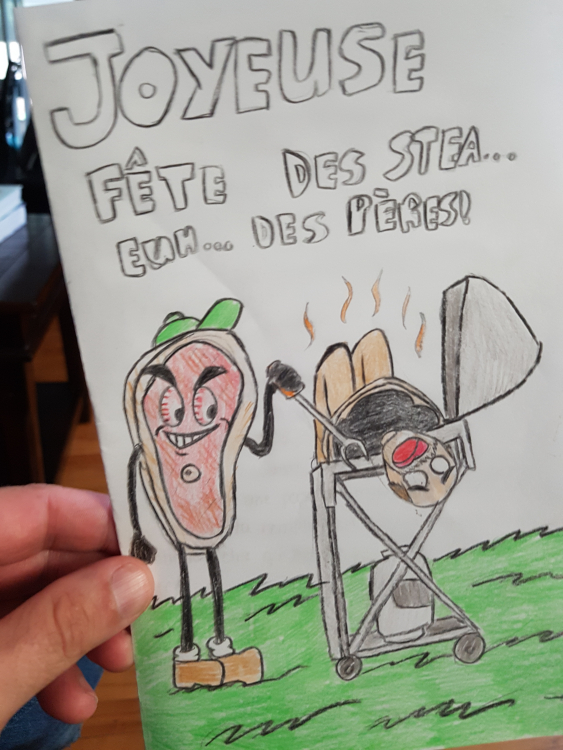 JOYEUSE
FÊTE DES STEA...
EUH... DES PÈRES!